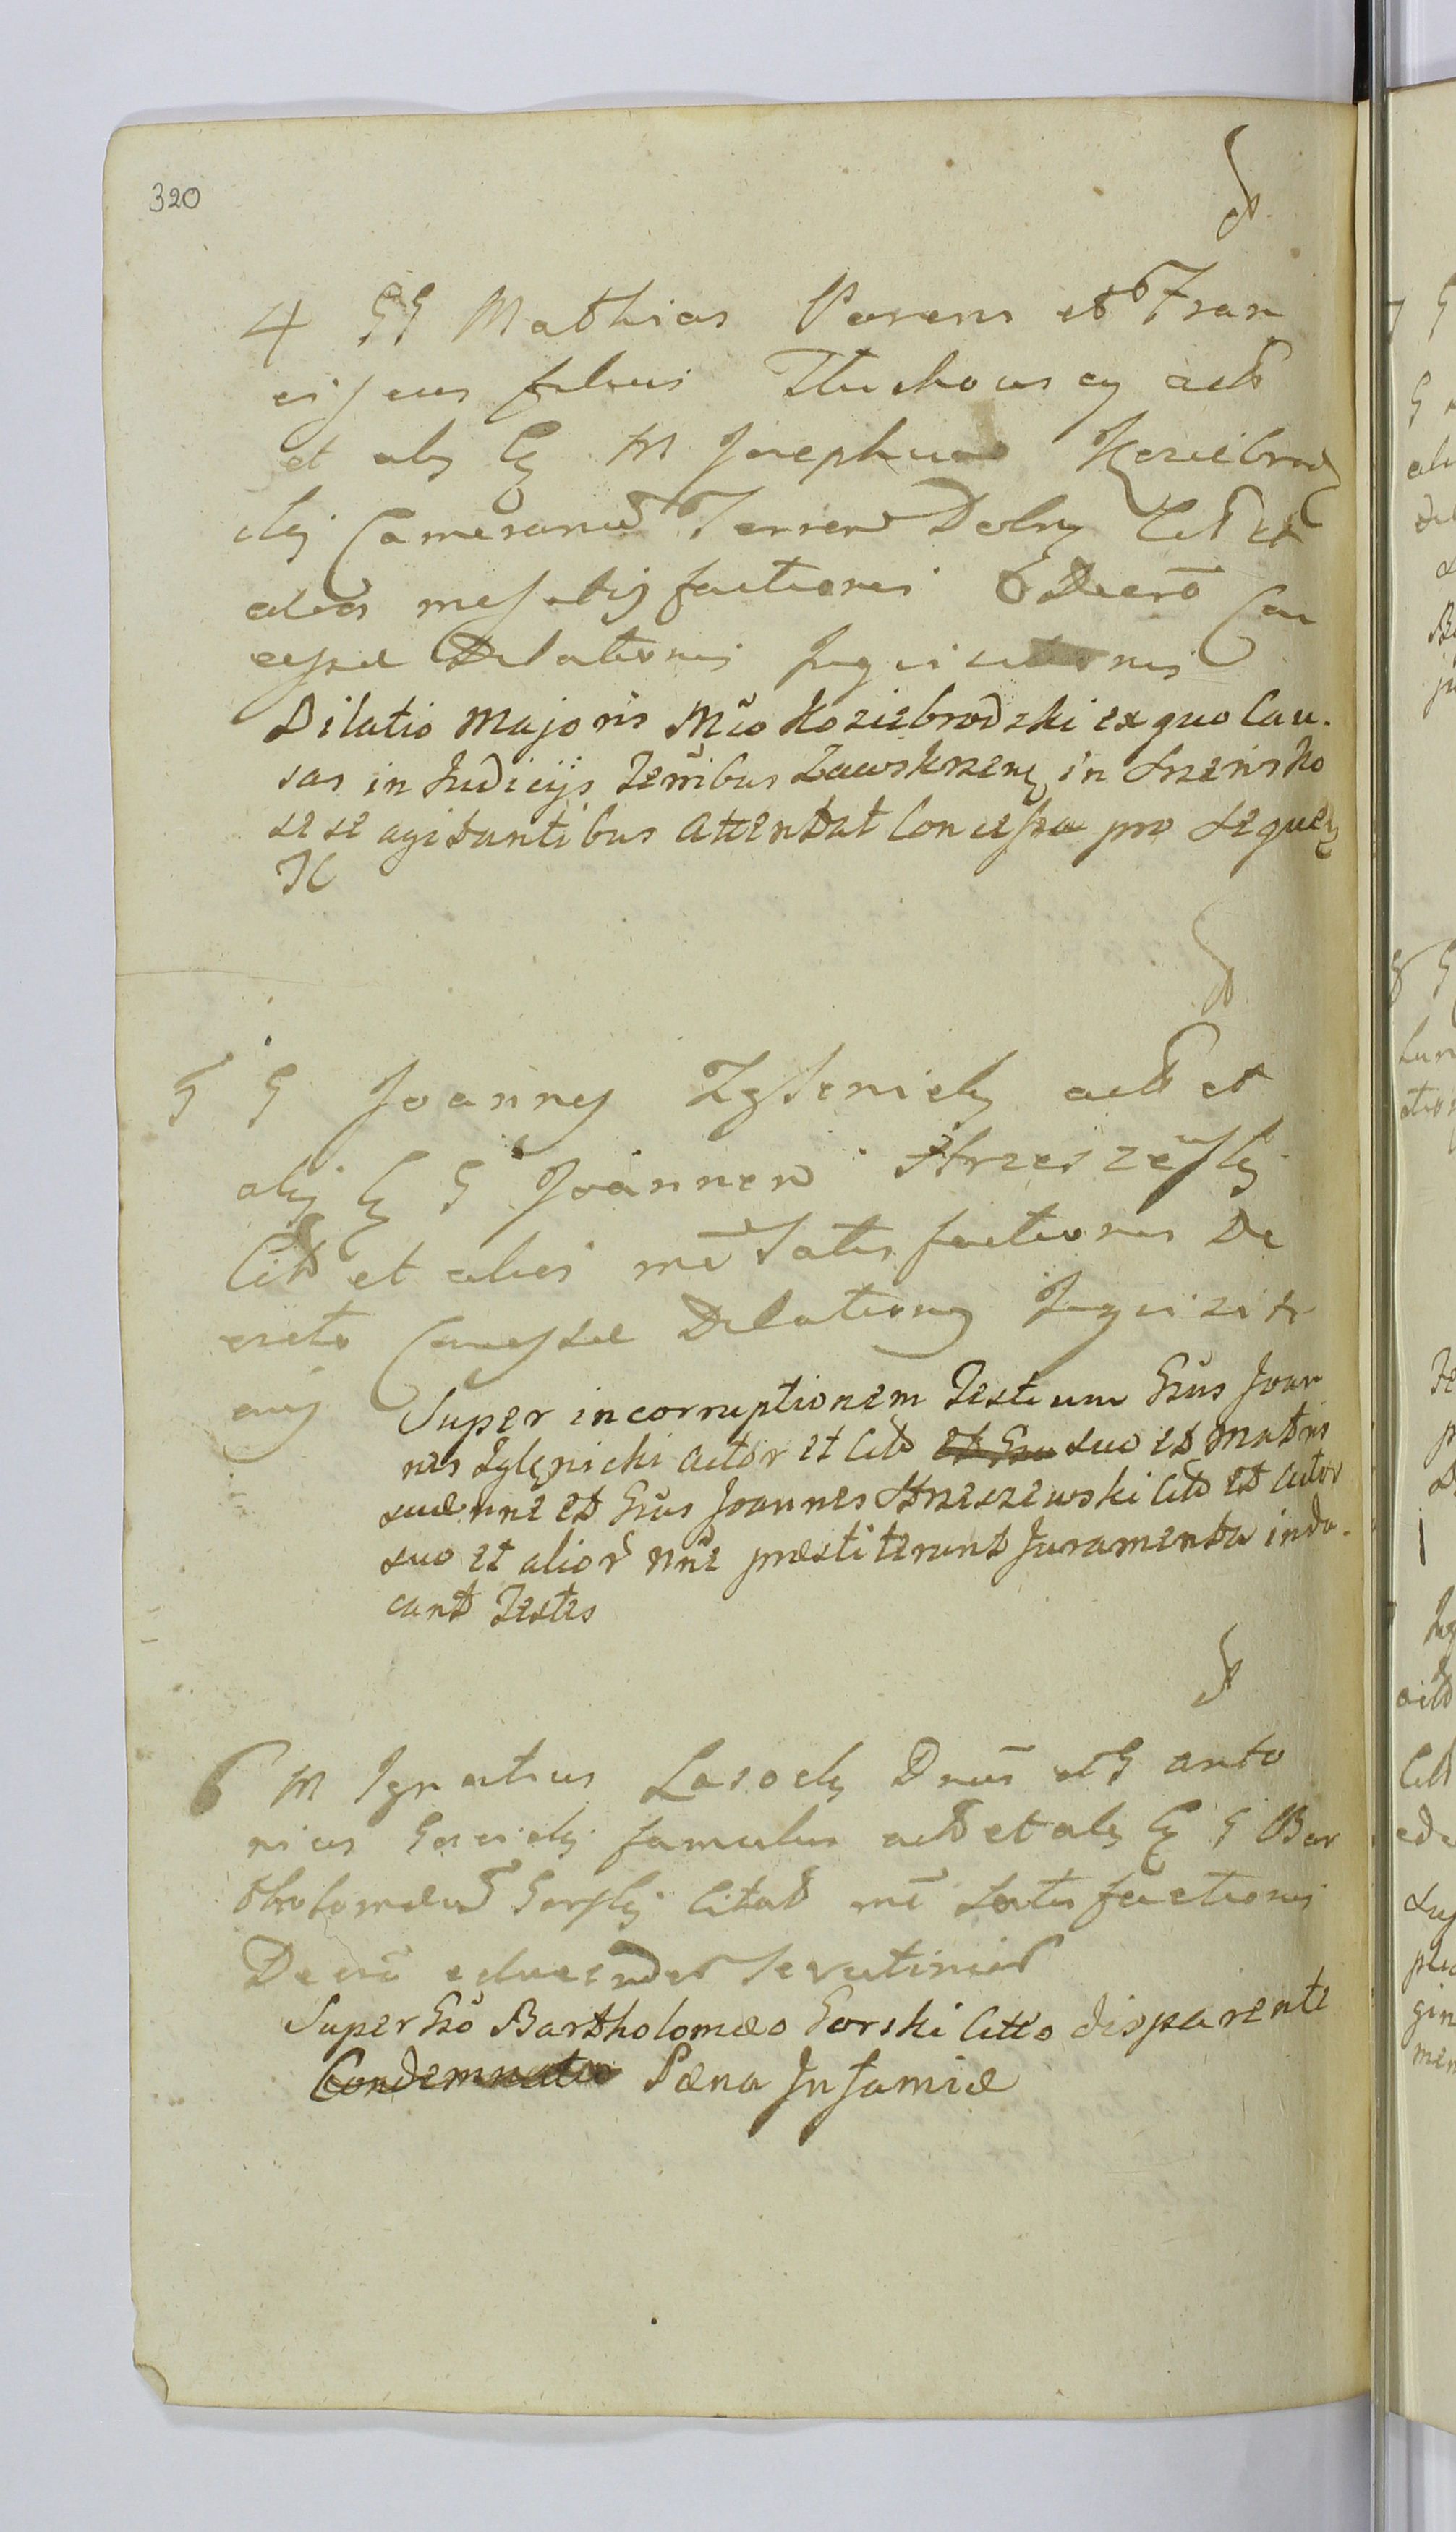 320
4 GG Mathias Parens et Fran
ciscus filius Tłuchowscy act
et alij Cq M Josephum Koziebrodz
ski Cameranum Terren Dobrz Citt et
alios me satisfactionis Decreto Con
cessae Dilationis Inquisitionis
Dilatio Majoris Mco Koziebrodzki ex quo Cau-
sas in Judicijs Terribus Zawskrzen in Szrensko
sese agitantibus attentat Concessa pro seque
JC
5 G Joannes Zglenicki act et
alij Cq G Joannem Strzeszewski
Citt et alios me Satisfactionis De
creto Concessae Dilationis Inquisiti
onis
Super incorruptionem Testium Gsus Joan
nes Zglenicki actor et Citt et Gsu suo et matris
suae nne et Gsus Joannes Strzeszewski Citt et actor
suo et alior nne praestiterunt Juramenta indu-
cant Testes
6 M Ignatius Lasocki Dnus et G Anto
nius famulus act et alij Cq G Bar
tholomaeum Gorski Citat me Satisfactionis
Decreto educendor Scrutinior
Super Gso Bartholomaeo Gorski Citto disparente
Condemnatio Paena Infamiae